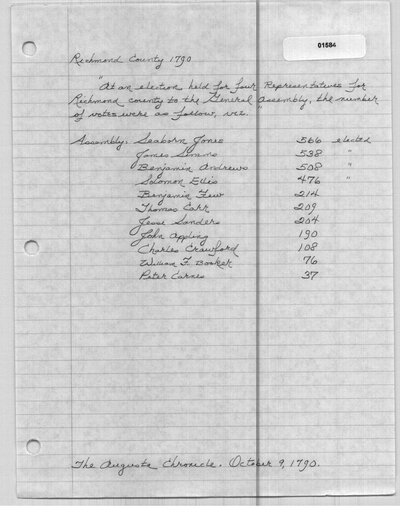 01584
Richmond County 1790
"At an election held for four Representatives for
Richmond county to the General Assembly, the number
of votes were as follow, viz. "
Assembly: Seaborn Jones 566 elected
James Simms 538
Benjamin Andrews 508 "
Solomon Ellis 476 "
Benjamin Few 214
Thomas Carr 209
Jesse Sanders 204
John Appling 190
Charles Crawford 108
William F. Booker 76
Peter Carnes 37
The Augusta Chronicle. October 9, 1790.